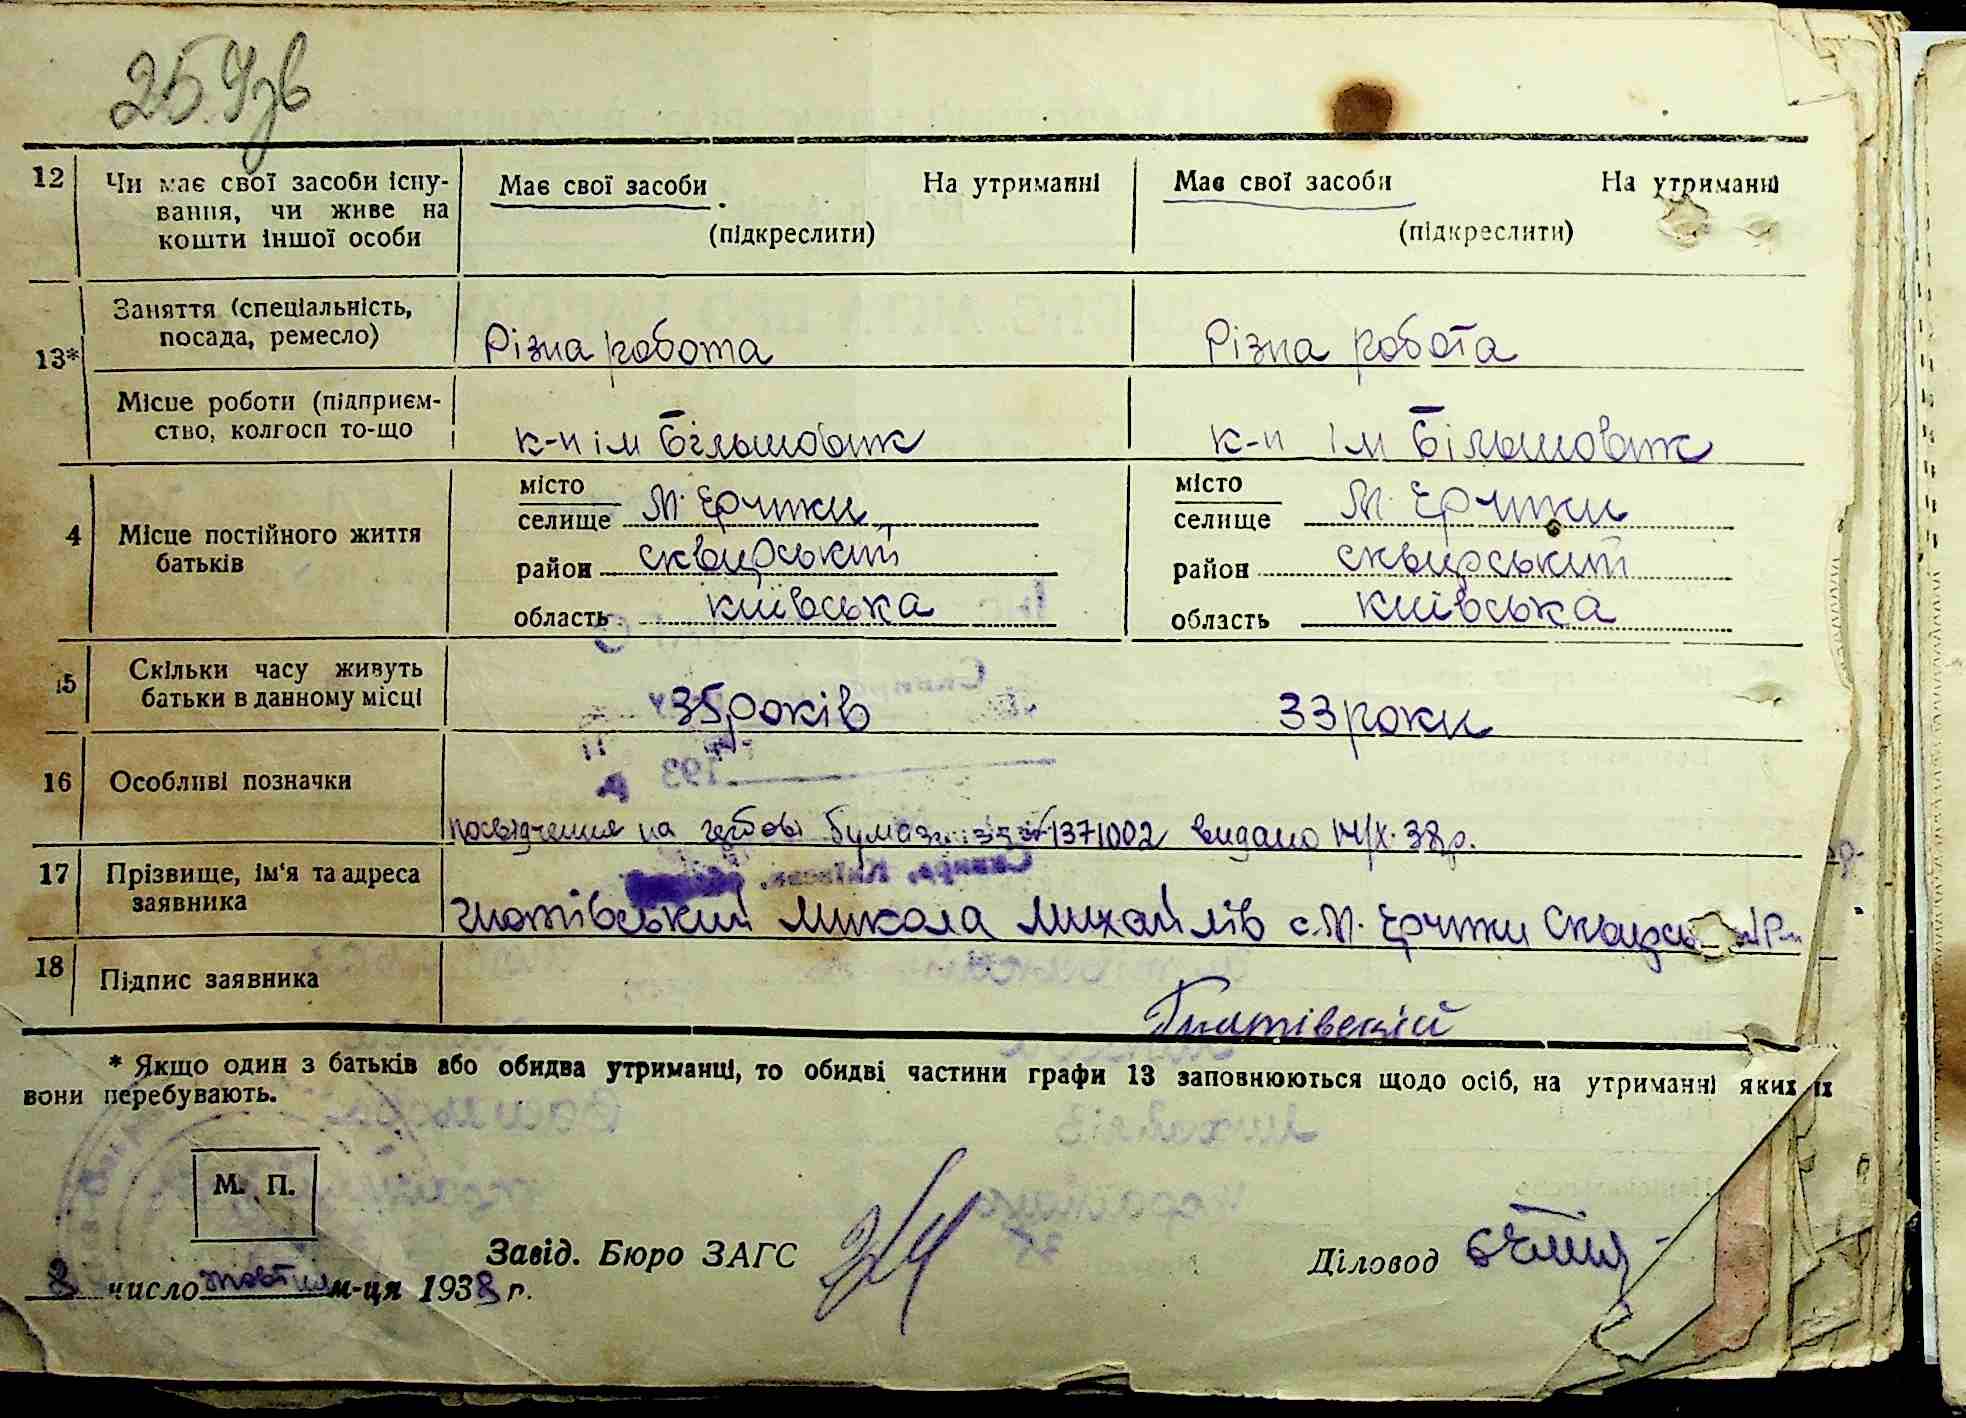 25
12 Чи має свої засоби існу-
вання, чи живе на
кошти іншої особи
Має свої засоби На утриманні
(підкреслити)
Має свої засоби На утриманні
(підкреслити)
13*
Заняття (спеціальність,
посада, ремесло)
Різна робота
Різна робота
Місце роботи (підприєм-
ство, колгосп то-що
к-п ім Більшовик
к-п ім Більшовик
4 Місце постійного життя
батьків
місто
селище М. Єрчики
район сквирський
область київська
місто
селище М. Єрчики
район сквирський
область київська
15 Скільки часу живуть
батьки в данному місці
35 років
33 роки
16 Особливі позначки
посвідчення на гербові бумазі 1371002 видано 14/X. 38р.
17 Прізвище, ім'я та адреса
заявника
Гнатівський Микола Михайлів с. М. Єрчики
18 Підпис заявника
Гнатівский
* Якщо один з батьків або обидва утриманці, то обидві частини графи 13 заповнюються щодо осіб, на утриманні яких їх
вони перебувають.
М. П.
Завід. Бюро ЗАГС
Діловод
8 число жовтня м-ця 1938 г.